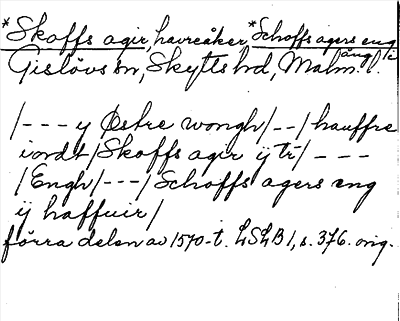 *Skoffs agir, havreåker, *Schoffs agers eng äng i
Gislövs sn, Skytts hd, Malm. l.
/--- y Østre wongh/--/hauffre
iordt/Skoffs agir ÿ tï/---
/Engh/---/Schoffs agers eng
ÿ haffuir/
förra delen av 1570-t. LSLB 1, s. 376. orig.